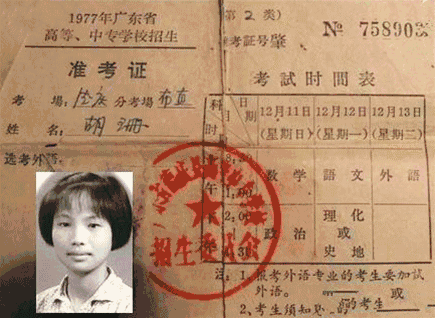 1977年广东省
高等、中专学校招生
准考证
考場: 分考場
姓名: 胡珊
选考外语:
(第2类)
准考证号肇 № 75890
考試时間表
科目 日期 12月11日 12月12日 12月13日
时 (星期日) (星期一) (星期二)
8:30
午 数学 語文 外語
1:00
午 2:00 理化
政治 或
4:30 史地
招生委員会
注: 1、报考外语专业的考生要加試
外语。
2、考生须知 的考生